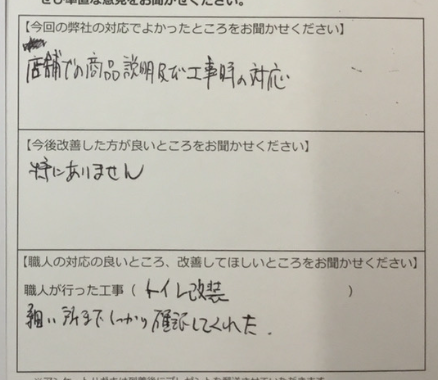 ぜひ率直な意見をお聞かせください。
【今回の弊社の対応でよかったところをお聞かせください】
店舗での商品説明及び工事時の対応
【今後改善した方が良いところをお聞かせください】
特にありません
【職人の対応の良いところ、改善してほしいところをお聞かせください】
職人が行った工事（ トイレ改装 ）
細い所までしっかり確認してくれた.